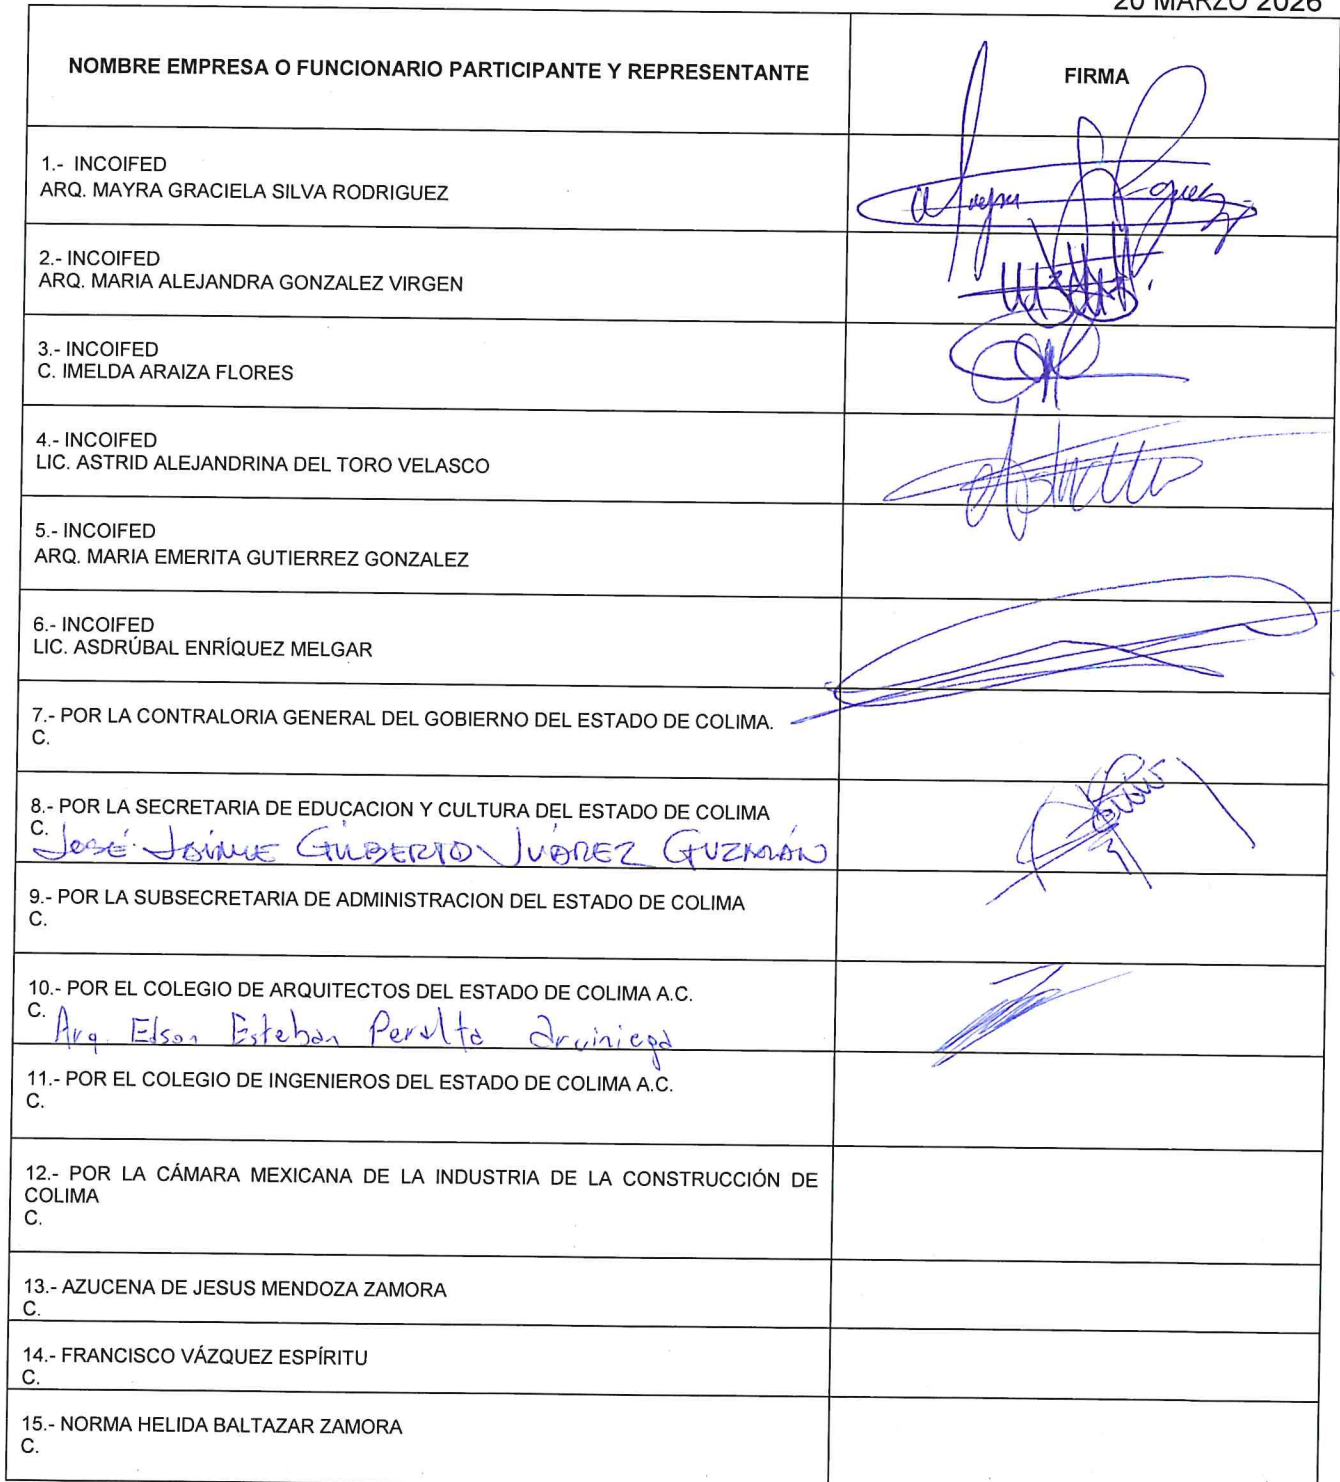 20 MARZO 2026
NOMBRE EMPRESA O FUNCIONARIO PARTICIPANTE Y REPRESENTANTE
FIRMA
1.- INCOIFED
ARQ. MAYRA GRACIELA SILVA RODRIGUEZ
2.- INCOIFED
ARQ. MARIA ALEJANDRA GONZALEZ VIRGEN
3.- INCOIFED
C. IMELDA ARAIZA FLORES
4.- INCOIFED
LIC. ASTRID ALEJANDRINA DEL TORO VELASCO
5.- INCOIFED
ARQ. MARIA EMERITA GUTIERREZ GONZALEZ
6.- INCOIFED
LIC. ASDRÚBAL ENRÍQUEZ MELGAR
7.- POR LA CONTRALORIA GENERAL DEL GOBIERNO DEL ESTADO DE COLIMA.
C.
8.- POR LA SECRETARIA DE EDUCACION Y CULTURA DEL ESTADO DE COLIMA
C. José Jaime Gilberto Juárez Guzmán
9.- POR LA SUBSECRETARIA DE ADMINISTRACION DEL ESTADO DE COLIMA
C.
10.- POR EL COLEGIO DE ARQUITECTOS DEL ESTADO DE COLIMA A.C.
C. Arq. Edson Esteban Peralta Arciniega
11.- POR EL COLEGIO DE INGENIEROS DEL ESTADO DE COLIMA A.C.
C.
12.- POR LA CÁMARA MEXICANA DE LA INDUSTRIA DE LA CONSTRUCCIÓN DE
COLIMA
C.
13.- AZUCENA DE JESUS MENDOZA ZAMORA
C.
14.- FRANCISCO VÁZQUEZ ESPÍRITU
C.
15.- NORMA HELIDA BALTAZAR ZAMORA
C.